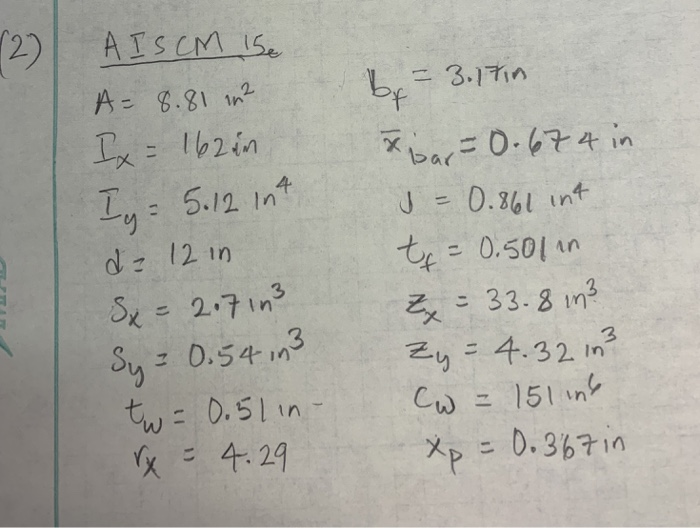 (2) AISCM 15e
A = 8.81 in²
Ix = 162 in
Iy = 5.12 in⁴
d = 12 in
Sx = 2.7 in³
Sy = 0.54 in³
tw = 0.51 in -
rx = 4.29
bf = 3.17in
x̄bar = 0.674 in
J = 0.861 in⁴
tf = 0.501 in
Zx = 33.8 in³
Zy = 4.32 in³
Cw = 151 in⁶
xp = 0.367 in